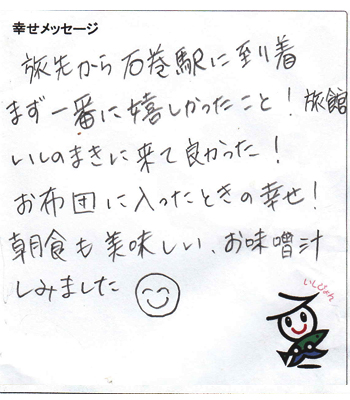 幸せメッセージ
旅先から石巻駅に到着
まず一番に嬉しかったこと！旅館
いしのまきに来て良かった！
お布団に入ったときの幸せ！
朝食も美味しい、お味噌汁
しみました
いしぴょん